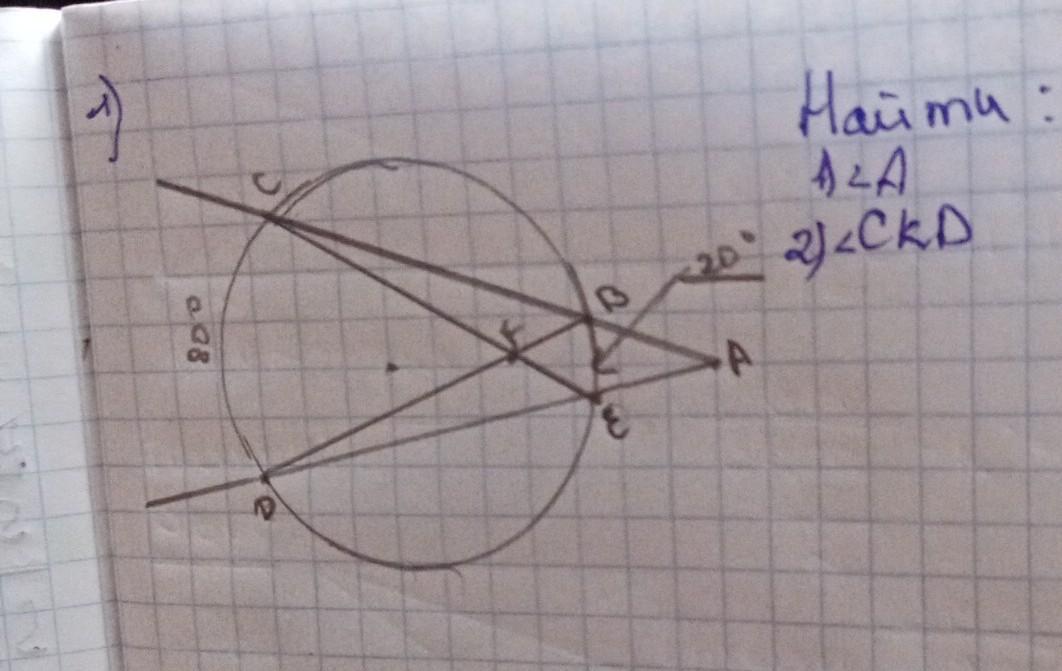 1)
Найти:
1) <A
2) <CKD
C
80°
20°
B
K
A
E
D